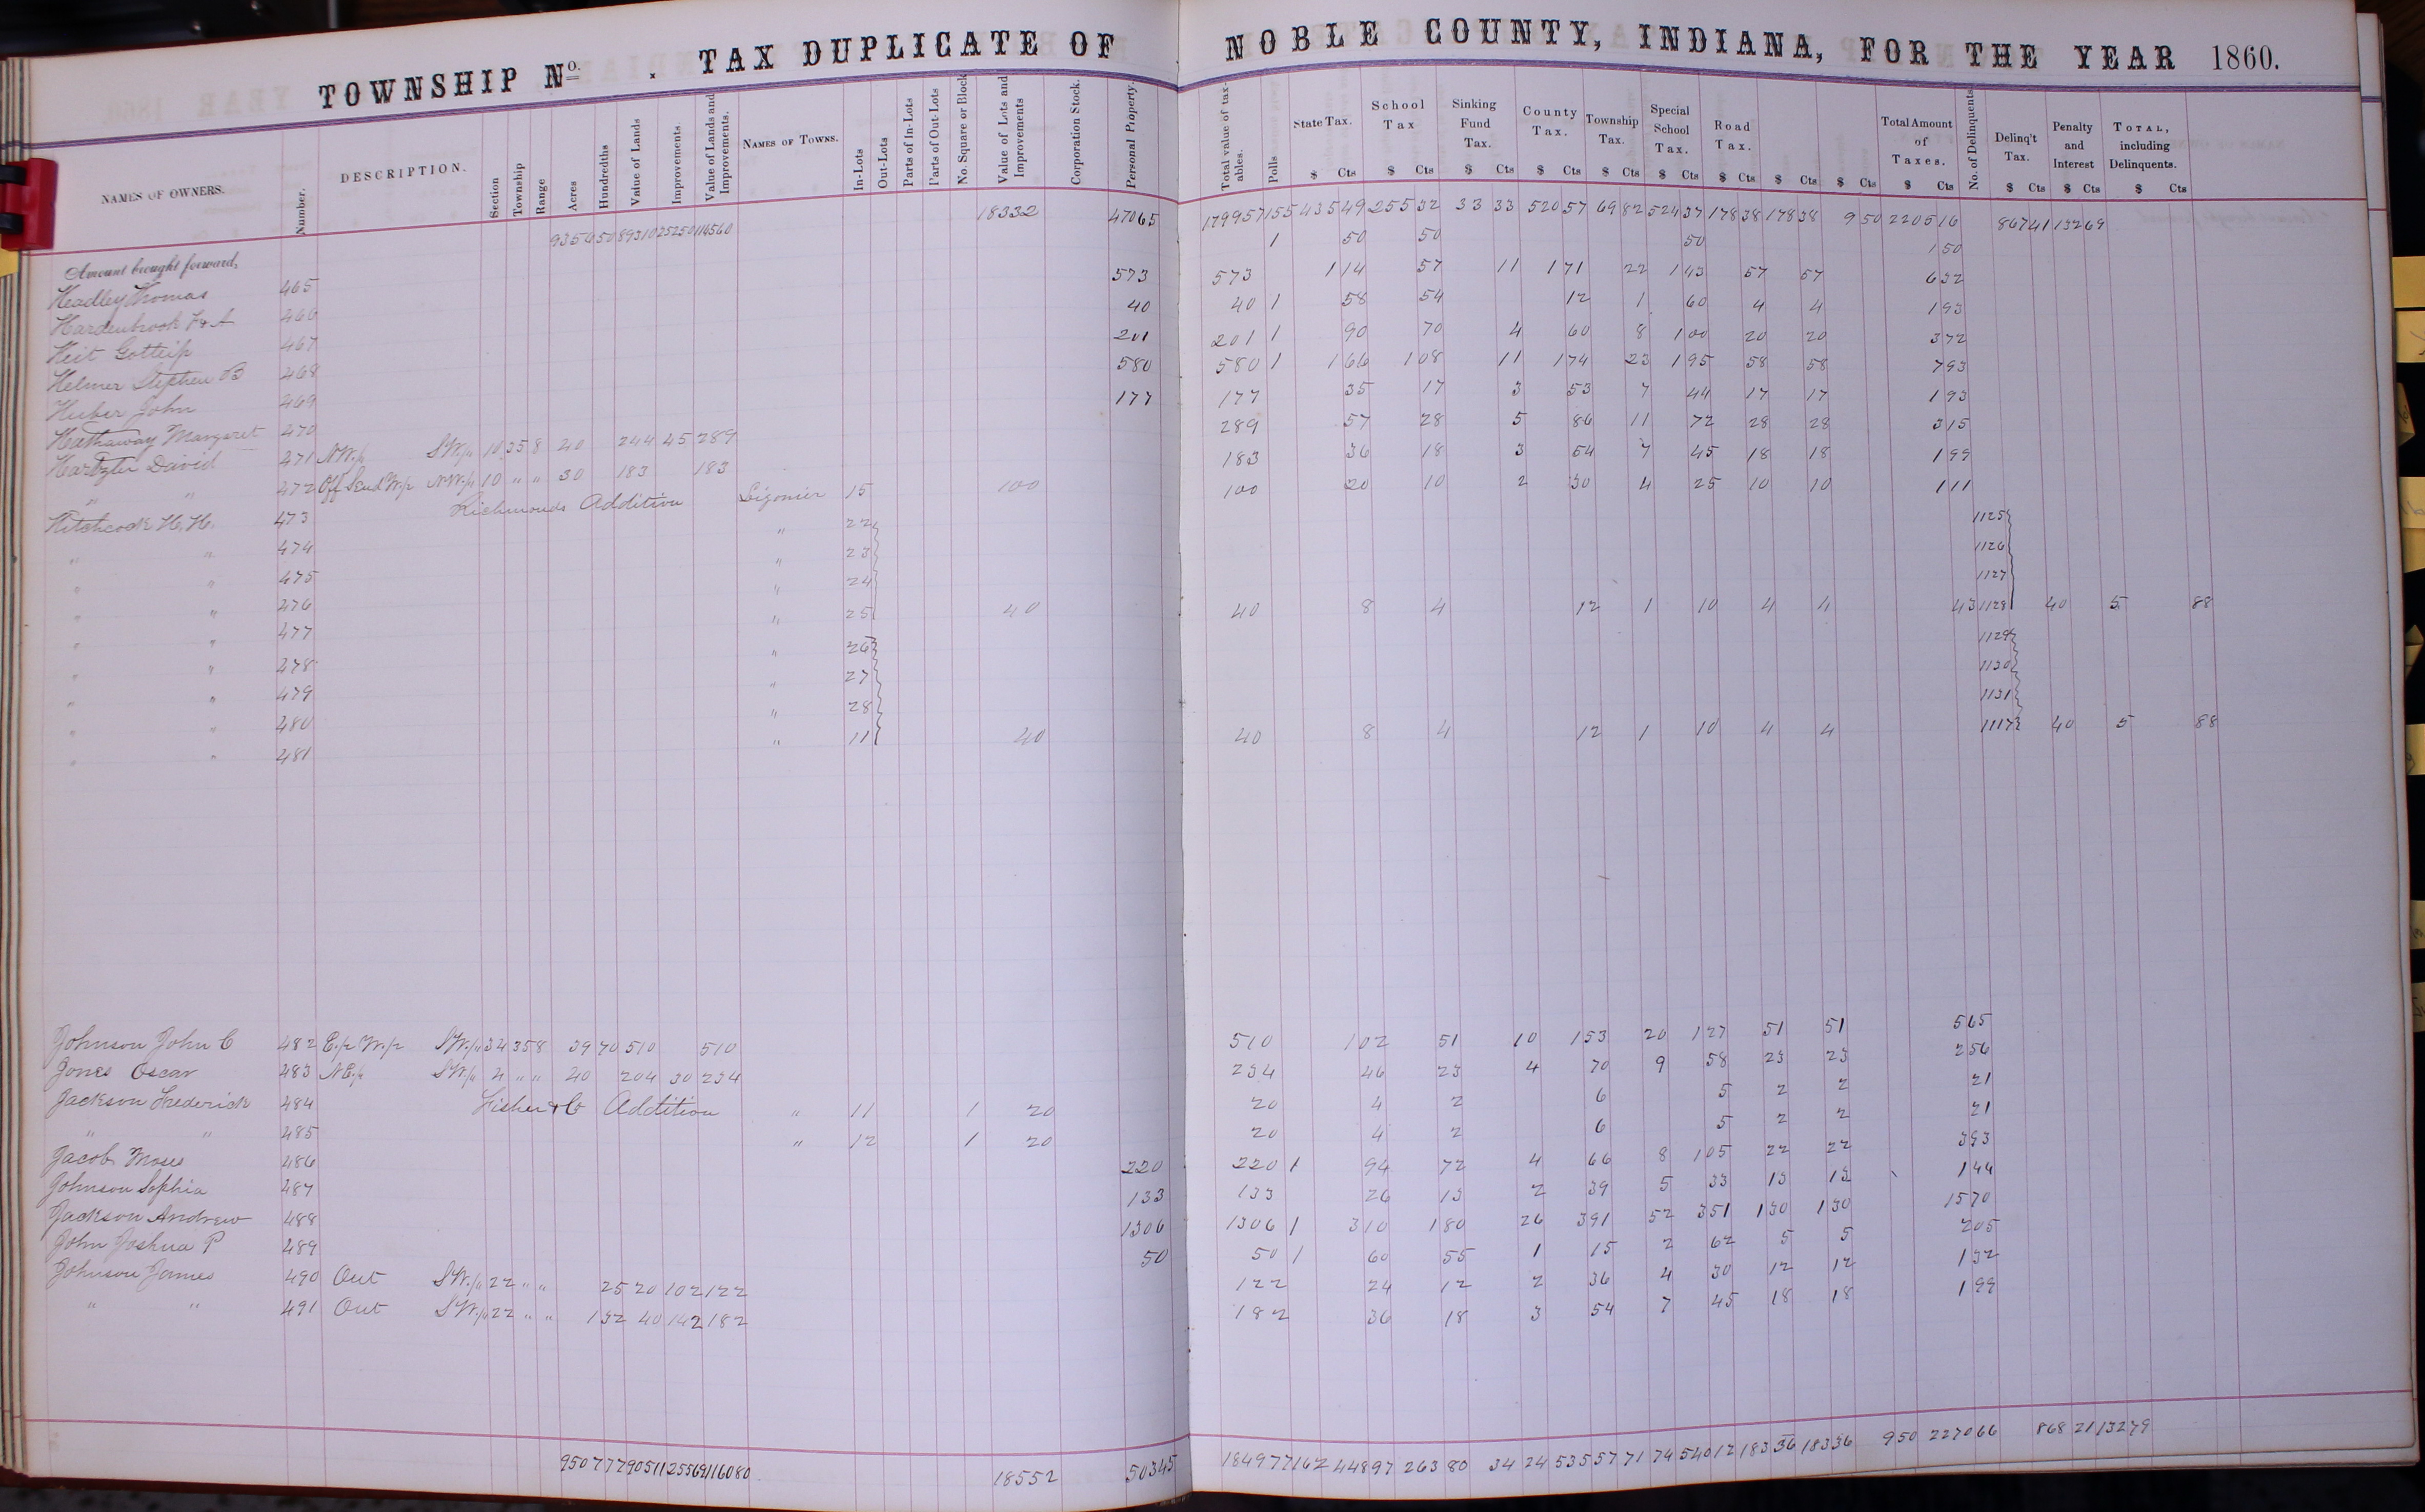 TOWNSHIP No. . TAX DUPLICATE OF NOBLE COUNTY, INDIANA, FOR THE YEAR 1860.
NAMES OF OWNERS. Number. DESCRIPTION. Section Township Range Acres Hundredths Value of Lands Improvements. Value of Lands and Improvements. NAMES OF TOWNS. In-Lots Out-Lots Parts of In-Lots Parts of Out-Lots No. Square or Block Value of Lots and Improvements Corporation Stock. Personal Property. Total value of taxables. Polls State Tax. $ Cts School Tax $ Cts Sinking Fund Tax. $ Cts County Tax. $ Cts Township Tax. $ Cts Special School Tax. $ Cts Road Tax. $ Cts $ Cts $ Cts Total Amount of Taxes. $ Cts No. of Delinquents Delinq't Tax. $ Cts Penalty and Interest $ Cts TOTAL, including Delinquents. $ Cts
Amount brought forward, 9356 50 89310 25250 114560 18332 47065 179957 155 435 49 255 32 33 33 520 57 69 82 524 37 178 38 178 38 9 50 2205 16 867 41 132 69
Headley Thomas 465 1 50 50 50 1 50
Hardenbrook F & A 466 573 573 1 14 57 11 1 71 22 1 43 57 57 6 32
Heit Gotleip 467 40 40 1 58 54 12 1 60 4 4 1 93
Helmer Stephen B 468 201 201 1 90 70 4 60 8 1 00 20 20 3 72
Huber John 469 580 580 1 1 66 1 08 11 1 74 23 1 95 58 58 7 93
Hathaway Margaret 470 177 177 35 17 3 53 7 44 17 17 1 93
Hartzler David 471 N W ¼ S W ¼ 10 35 8 40 244 45 289 289 57 28 5 86 11 72 28 28 3 15
" " 472 Off S end W ½ N W ¼ 10 " " 30 183 183 183 36 18 3 54 7 45 18 18 1 99
Hitchcock H. H. 473 Richmonds Addition Ligonier 15 100 100 20 10 2 30 4 25 10 10 1 11
" " 474 " 22 1125
" " 475 " 23 1126
" " 476 " 24 1127
" " 477 " 25 40 40 8 4 12 1 10 4 4 43 1128 40 5 88
" " 478 " 26 1129
" " 479 " 27 1130
" " 480 " 28 1131
" " 481 " 11 40 40 8 4 12 1 10 4 4 1117 40 5 88
Johnson John C 482 E ½ W ½ S W ¼ 34 35 8 39 70 510 510 510 1 02 51 10 1 53 20 1 27 51 51 5 65
Jones Oscar 483 N E ¼ S W ¼ 4 " " 40 204 30 234 234 46 23 4 70 9 58 23 23 2 56
Jackson Frederick 484 Fisher & Co Addition " 11 1 20 20 4 2 6 5 2 2 21
" " 485 " 12 1 20 20 4 2 6 5 2 2 21
Jacobs Moses 486 220 220 1 94 72 4 66 8 1 05 22 22 3 93
Johnson Sophia 487 133 133 26 13 2 39 5 33 13 13 1 44
Jackson Andrew 488 1306 1306 1 3 10 1 80 26 3 91 52 3 51 1 30 1 30 15 70
John Joshua P 489 50 50 1 60 55 1 15 2 62 5 5 2 05
Johnson James 490 Out S W ¼ 22 " " 25 20 102 122 122 24 12 2 36 4 30 12 12 1 32
" " 491 Out S W ¼ 22 " " 1 32 40 142 182 182 36 18 3 54 7 45 18 18 1 99
9507 77 90511 25569 116080 18552 50345 184977 162 448 97 263 80 34 24 535 57 71 74 540 12 183 36 183 36 9 50 2270 66 868 21 132 79